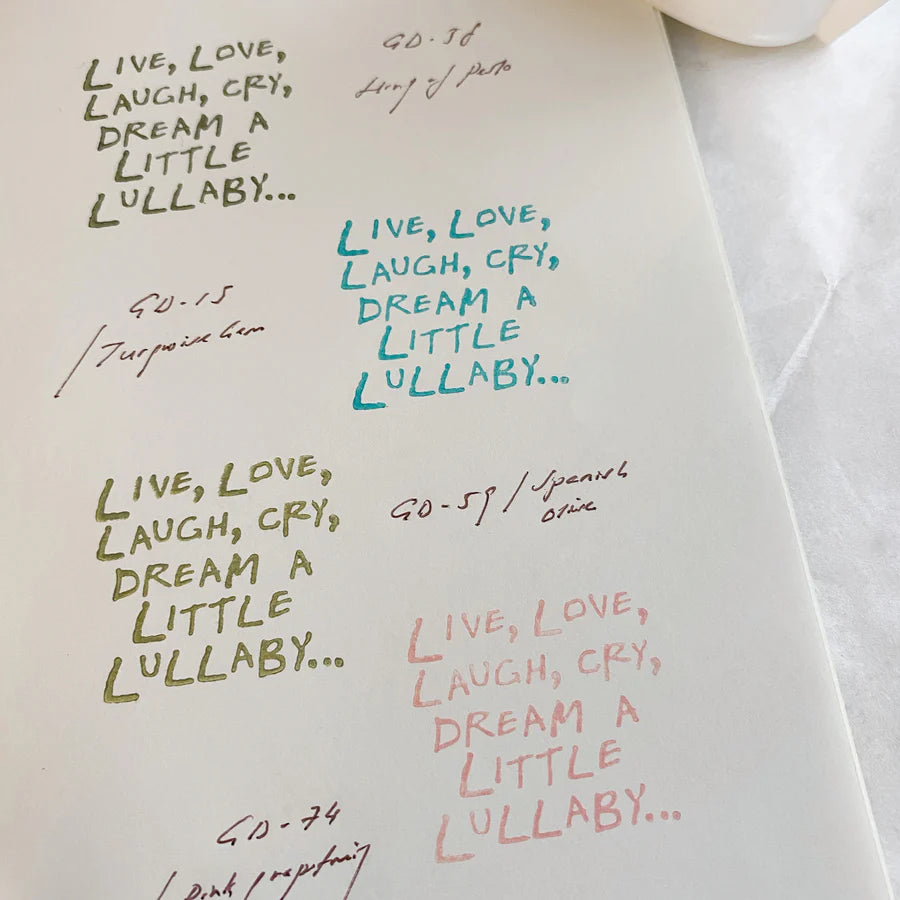 LIVE, LOVE,
LAUGH, CRY,
DREAM A
LITTLE
LULLABY...
GD-38
of Pesto
LIVE, LOVE,
LAUGH, CRY,
DREAM A
LITTLE
LULLABY...
GD-15
/ Turquoise Gem
LIVE, LOVE,
LAUGH, CRY,
DREAM A
LITTLE
LULLABY...
GD-59 / Spanish
Olive
LIVE, LOVE,
LAUGH, CRY,
DREAM A
LITTLE
LULLABY...
GD-74
/ Pink